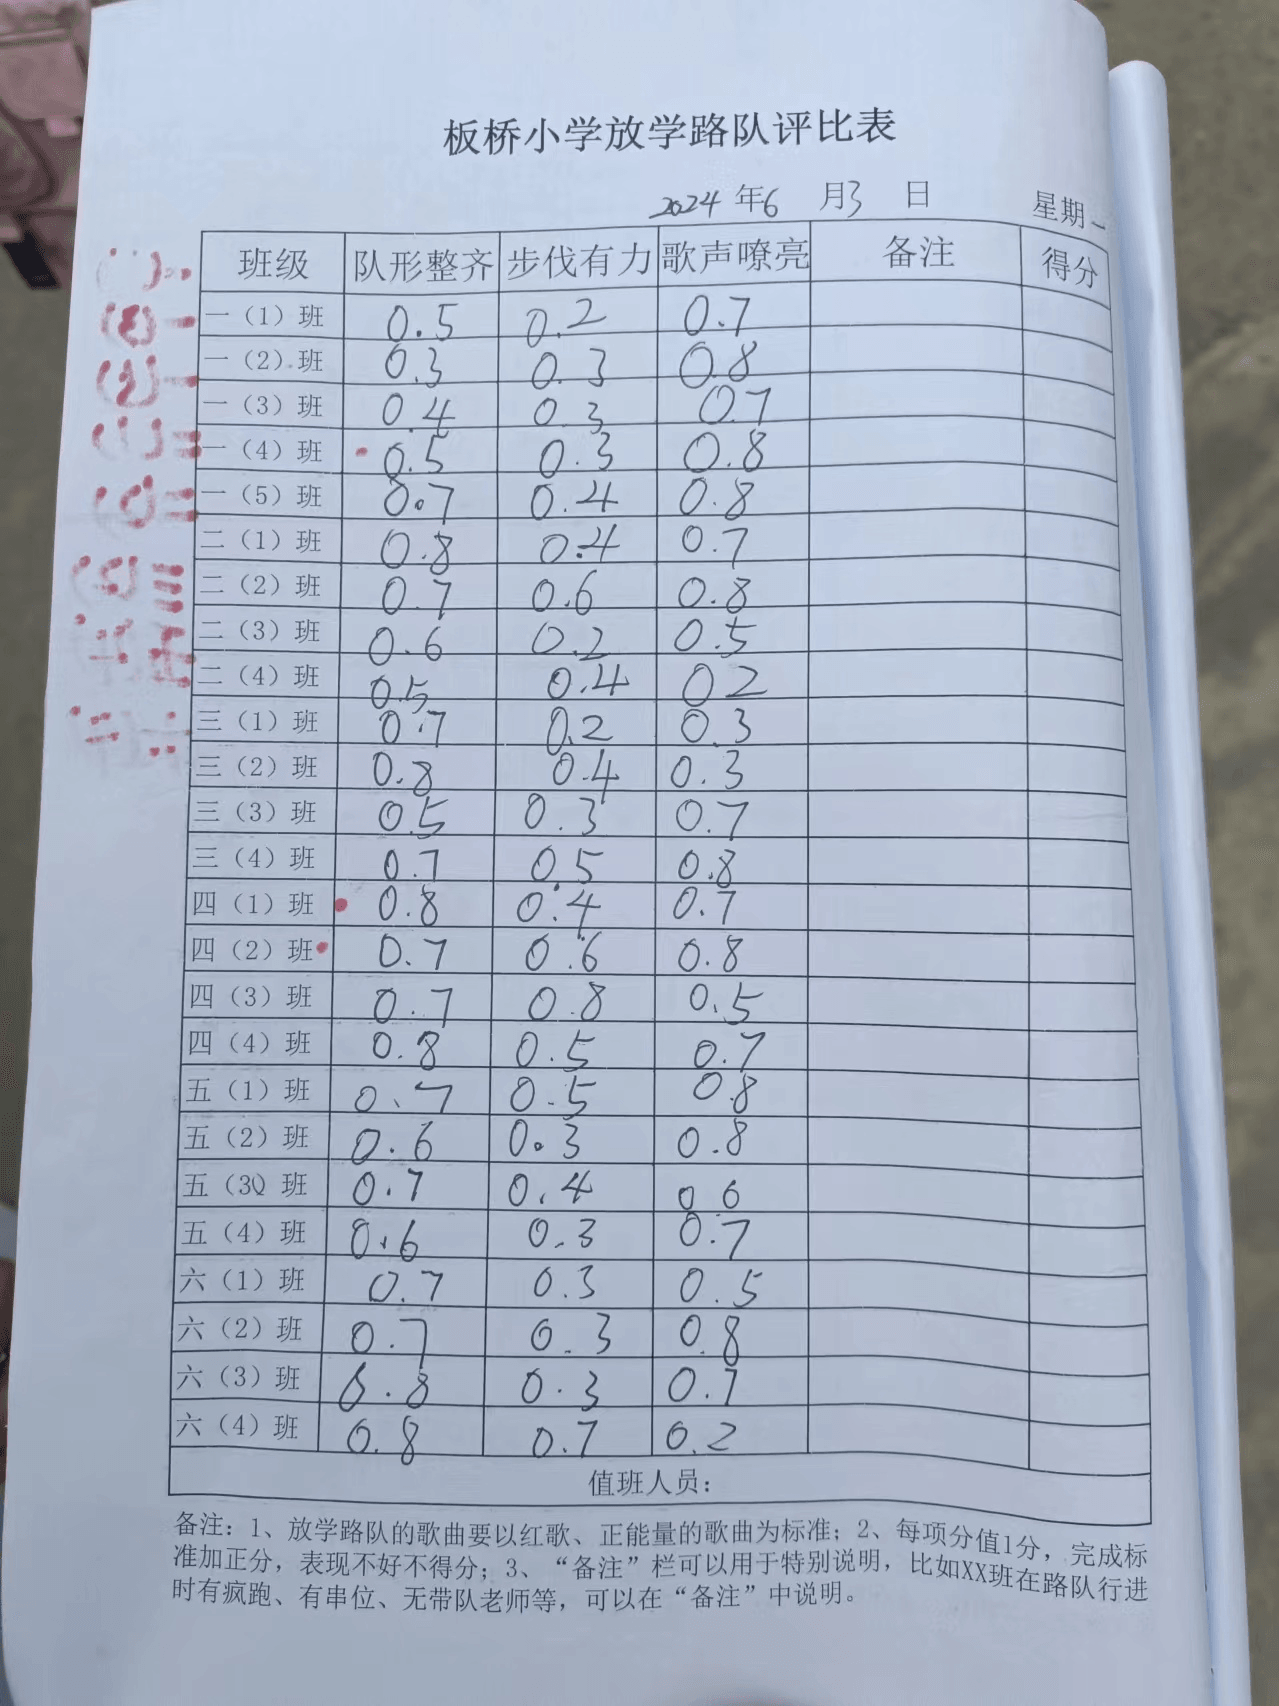 板桥小学放学路队评比表
2024 年6 月3 日 星期一
班级 队形整齐 步伐有力 歌声嘹亮 备注 得分
一（1）班 0.5 0.2 0.7
一（2）班 0.3 0.3 0.8
一（3）班 0.4 0.3 0.7
一（4）班 0.5 0.3 0.8
一（5）班 0.7 0.4 0.8
二（1）班 0.8 0.4 0.7
二（2）班 0.7 0.6 0.8
二（3）班 0.6 0.2 0.5
二（4）班 0.5 0.4 02
三（1）班 0.7 0.2 0.3
三（2）班 0.8 0.4 0.3
三（3）班 0.5 0.3 0.7
三（4）班 0.7 0.5 0.8
四（1）班 0.8 0.4 0.7
四（2）班 0.7 0.6 0.8
四（3）班 0.7 0.8 0.5
四（4）班 0.8 0.5 0.7
五（1）班 0.7 0.5 0.8
五（2）班 0.6 0.3 0.8
五（3）班 0.7 0.4 0 6
五（4）班 0.6 0.3 0.7
六（1）班 0.7 0.3 0.5
六（2）班 0.7 0.3 0.8
六（3）班 0.8 0.3 0.7
六（4）班 0.8 0.7 0.2
值班人员：
备注：1、放学路队的歌曲要以红歌、正能量的歌曲为标准；2、每项分值1分，完成标
准加正分，表现不好不得分；3、“备注”栏可以用于特别说明，比如XX班在路队行进
时有疯跑、有串位、无带队老师等，可以在“备注”中说明。